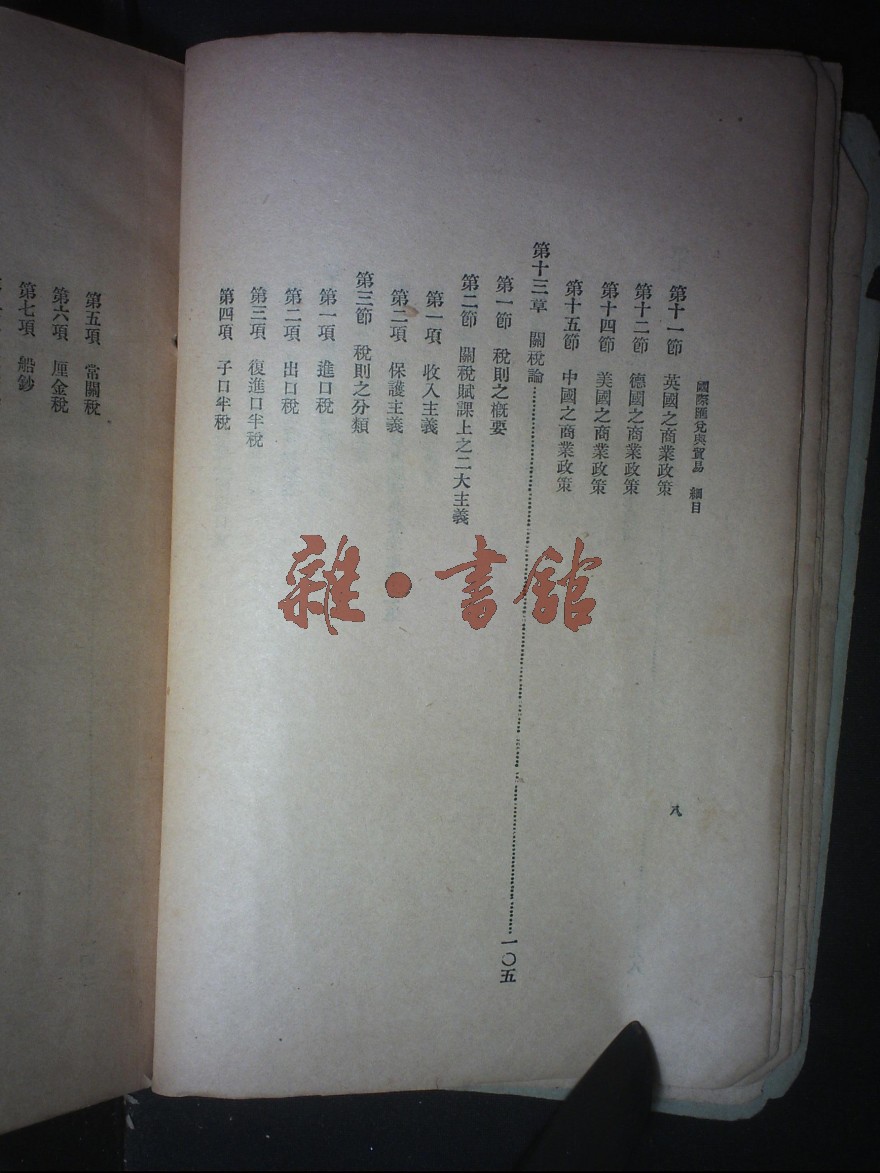 國際匯兌與貿易　細目
八
第十一節　英國之商業政策
第十二節　德國之商業政策
第十四節　美國之商業政策
第十五節　中國之商業政策
第十三章　關稅論……一〇五
第一節　稅則之概要
第二節　關稅賦課上之二大主義
第一項　收入主義
第二項　保護主義
第三節　稅則之分類
第一項　進口稅
第二項　出口稅
第三項　復進口半稅
第四項　子口半稅
第五項　常關稅
第六項　厘金稅
第七項　船鈔
雜・書館